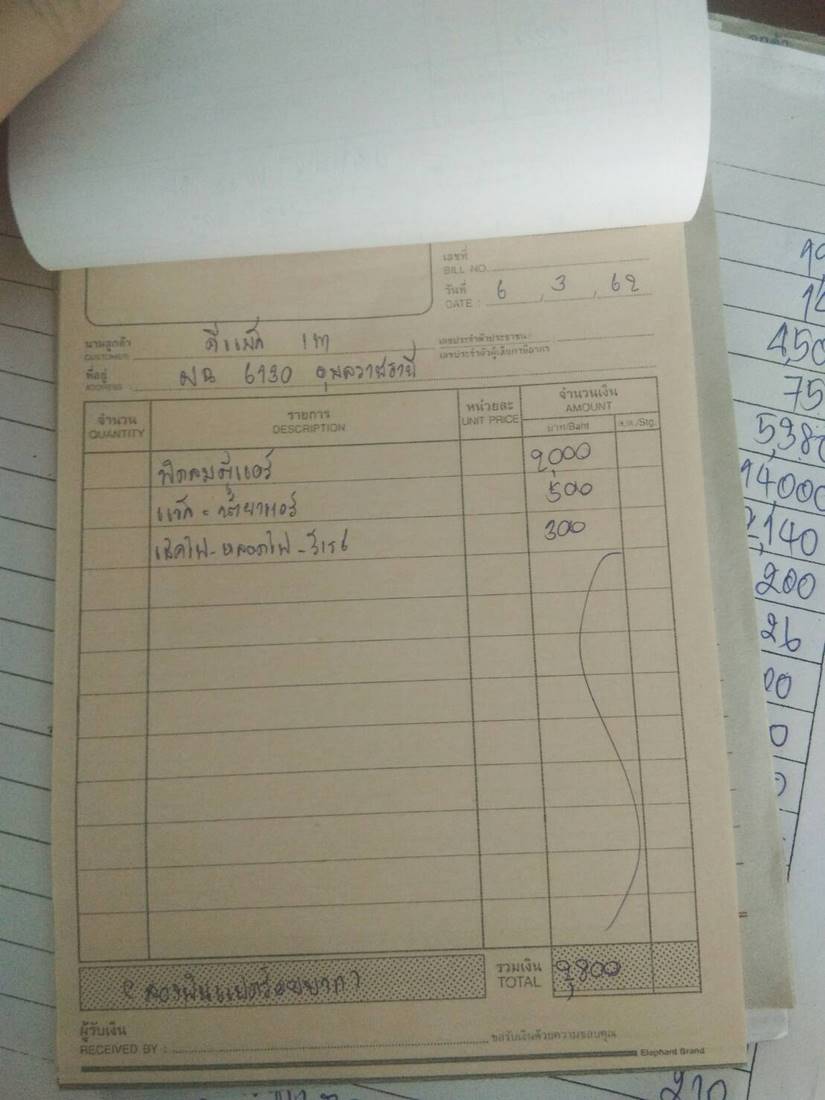 เลขที่
BILL NO.
วันที่
DATE : 6 , 3 , 62
นามลูกค้า
CUSTOMER ดีแม็ก เทา
เลขประจำตัวประชาชน
เลขประจำตัวผู้เสียภาษีอากร
ที่อยู่
ADDRESS ผฉ 6130 อุบลราชธานี
จำนวน รายการ หน่วยละ จำนวนเงิน
QUANTITY DESCRIPTION UNIT PRICE AMOUNT
บาท/Baht ส.ต./Stg.
พัดลมตู้แอร์ 2,000
แว็ค = น้ำยาแอร์ 500
เช็คไฟ - หลอดไฟ - รีเรย์ 300
(สองพันแปดร้อยบาท)
รวมเงิน
TOTAL 2,800
ผู้รับเงิน
RECEIVED BY : ขอรับเงินด้วยความขอบคุณ
Elephant Brand
4,50
75
5,380
14,000
2,140
200
26
210